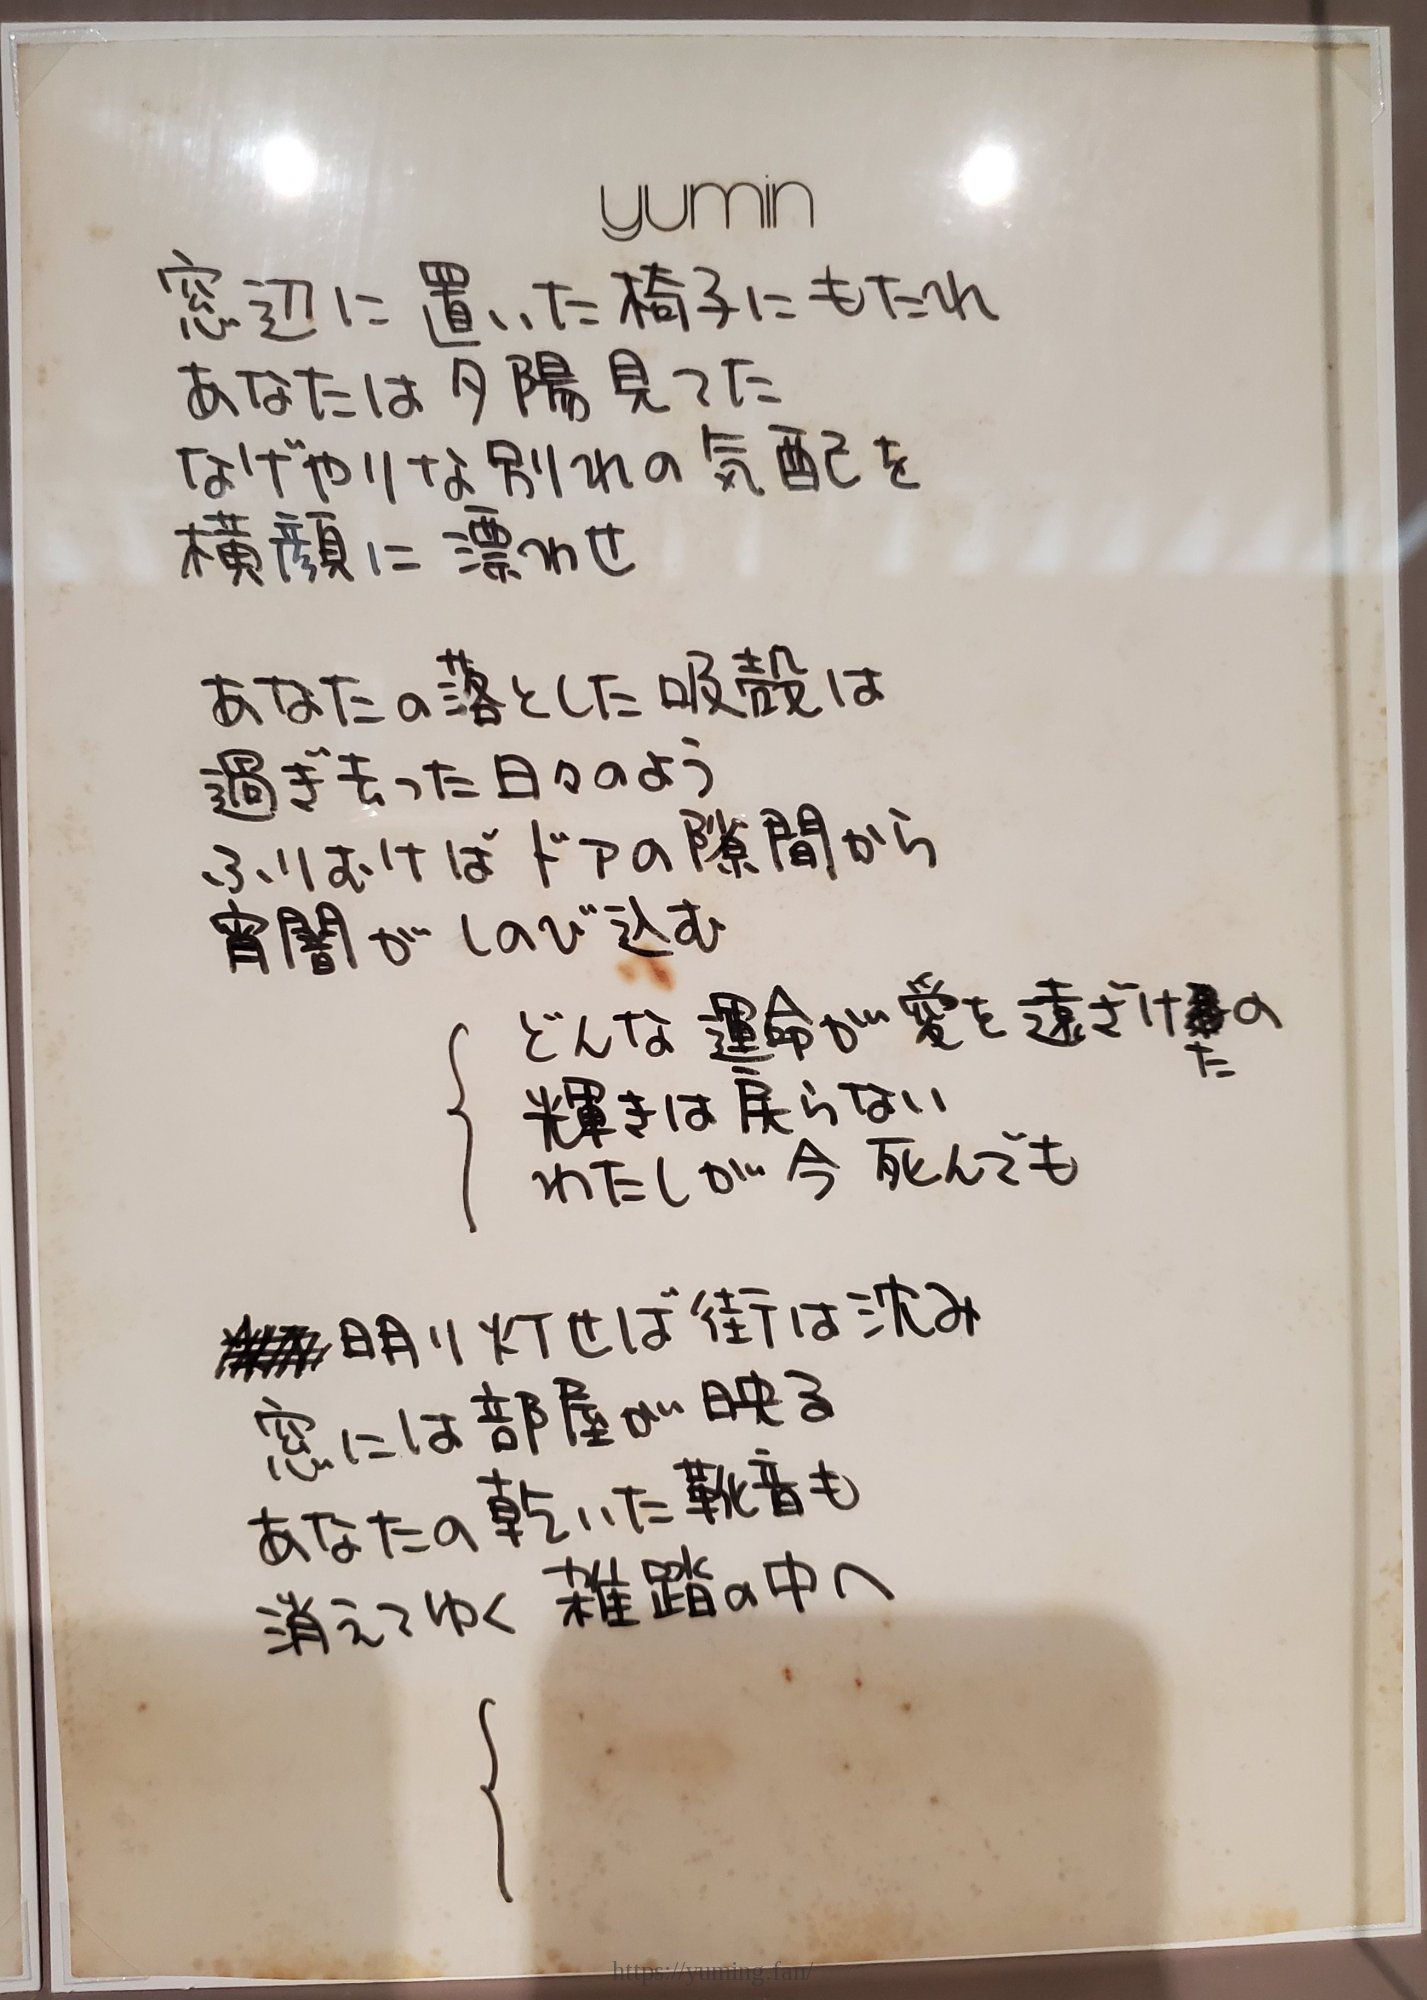 yumin
窓辺に置いた椅子にもたれ
あなたは夕陽見てた
なげやりな別れの気配を
横顔に漂わせ
あなたの落とした吸殻は
過ぎ去った日々のよう
ふりむけばドアの隙間から
宵闇がしのび込む
どんな運命が愛を遠ざけたの
輝きは戻らない
わたしが今死んでも
明り灯せば街は沈み
窓には部屋が映る
あなたの乾いた靴音も
消えてゆく雑踏の中へ
https://yuming.fan/